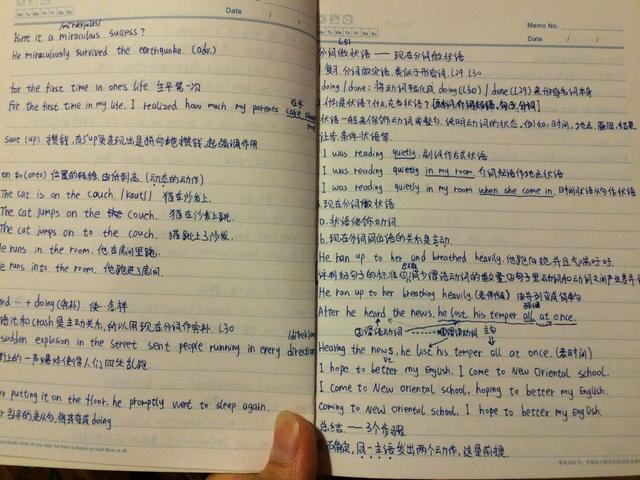 Date / /
Mo Tu We Th Fr Sa Su
/mi'rækjələs/
Isn't it a miraculous success?
He miraculously survived the earthquake. (adv.)
for the first time in one's life 生平第一次
For the first time in my life, I realized how much my parents care about
me
save (up) 攒钱,
on to (onto) 位置的转移, 由低到高. (动态的动作)
The cat is on the couch. /kaʊtʃ/ 猫在沙发上.
The cat jumps on the couch. 猫在沙发上跳.
The cat jumps on to the couch. 猫跳上了沙发.
He runs in the room. 他在房间里跑.
He runs into the room. 他跑进房间.
+ doing (宾补) 使…怎样
和crash是主动关系, 所以用现在分词作宾补. L30
sudden explosion in the street sent people running in every direction
街上的一声爆炸使得人们四处乱跑
putting it on the floor, he promptly went to sleep again.
引导的是从句, 将其变成doing
Memo No.
Mo Tu We Th Fr Sa Su
Date / /
L31
分词做状语 —— 现在分词做状语
1. 复习. 分词做定语, 类似于形容词. L29 L30
doing / done: 将动词变化成 doing (L30) / done (L29) 来形容名词本身
2. 什么是状语? 什么充当状语? [副词, 介词短语, 句子, 分词]
状语一般来修饰动词或整句, 说明动词的状态, 例如: 时间, 地点, 原因, 结果
让步, 条件状语等.
I was reading quietly. 副词作方式状语
I was reading quietly in my room. 介词短语作地点状语
I was reading quietly in my room when she come in. 时间状语从句作状语
3. 现在分词做状语
a. 状语修饰动词
b. 现在分词同位语的关系是主动.
He ran up to her and breathed heavily. 他跑向她, 并且气喘吁吁.
He ran up to her breathing heavily. (表伴随) 由并列变成简单句
After he heard the news, he lost his temper all at once.
①谓语动词 ②谓语动词 主句
Hearing the news, he lost his temper all at once. (表时间)
vt.
I hope to better my English. I come to New Oriental school.
I come to New Oriental school, hoping to better my English.
Coming to New Oriental school, I hope to better my English.
总结. —— 3个步骤
①确定, 同一主语发出两个动作, 这是前提.